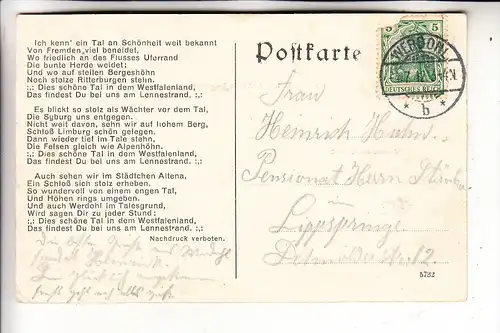 Ich kenn' ein Tal an Schönheit weit bekannt
Von Fremden viel beneidet,
Wo friedlich an des Flusses Uferrand
Die bunte Herde weidet;
Und wo auf steilen Bergeshöhn
Noch stolze Ritterburgen stehn.
:,: Dies schöne Tal in dem Westfalenland,
Das findest Du bei uns am Lennestrand. :,:
Es blickt so stolz als Wächter vor dem Tal,
Die Syburg uns entgegen.
Nicht weit davon, sehn wir auf hohem Berg,
Schloß Limburg schön gelegen,
Dann wieder tief im Tale stehn,
Die Felsen gleich wie Alpenhöhn.
:,: Dies schöne Tal in dem Westfalenland,
Das findest Du bei uns am Lennestrand. :,:
Auch sehen wir im Städtchen Altena,
Ein Schloß sich stolz erheben.
So wundervoll von einem engen Tal,
Und Höhen rings umgeben.
Und auch Werdohl im Talesgrund,
Wird sagen Dir zu jeder Stund:
:,: Dies schöne Tal in dem Westfalenland,
Das findest Du bei uns am Lennestrand. :,:
Nachdruck verboten.
Die
sendet Heinrich.
Postkarte
5 5
DEUTSCHES REICH
WERDOHL
* b *
Frau
Heinrich Huhn.
Pensionat Herrn
Lippspringe
Detmolder 12.
5782